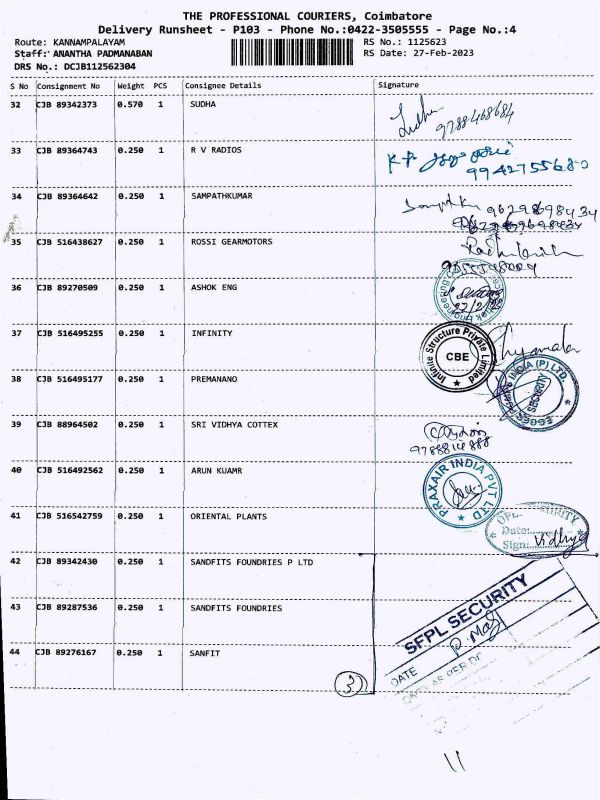 THE PROFESSIONAL COURIERS, Coimbatore
Delivery Runsheet - P103 - Phone No.:0422-3505555 - Page No.:4
Route: KANNAMPALAYAM RS No.: 1125623
Staff: ANANTHA PADMANABAN RS Date: 27-Feb-2023
DRS No.: DCJB112562304
S No Consignment No Weight PCS Consignee Details Signature
32 CJB 89342373 0.570 1 SUDHA
9788468684
33 CJB 89364743 0.250 1 R V RADIOS
9942755680
34 CJB 89364642 0.250 1 SAMPATHKUMAR
9629898434
35 CJB 516438627 0.250 1 ROSSI GEARMOTORS
36 CJB 89270509 0.250 1 ASHOK ENG
37 CJB 516495255 0.250 1 INFINITY
Infinite Structure Private Limited
CBE
38 CJB 516495177 0.250 1 PREMANANO
INDIA (P) LTD.
SECURITY
39 CJB 88964502 0.250 1 SRI VIDHYA COTTEX
9788814888
40 CJB 516492562 0.250 1 ARUN KUAMR
PRAXAIR INDIA PVT LTD
41 CJB 516542759 0.250 1 ORIENTAL PLANTS
OPL SECURITY
Date:
Sign: Vidhya
42 CJB 89342430 0.250 1 SANDFITS FOUNDRIES P LTD
43 CJB 89287536 0.250 1 SANDFITS FOUNDRIES
SFPL SECURITY
44 CJB 89276167 0.250 1 SANFIT
DATE
3
11